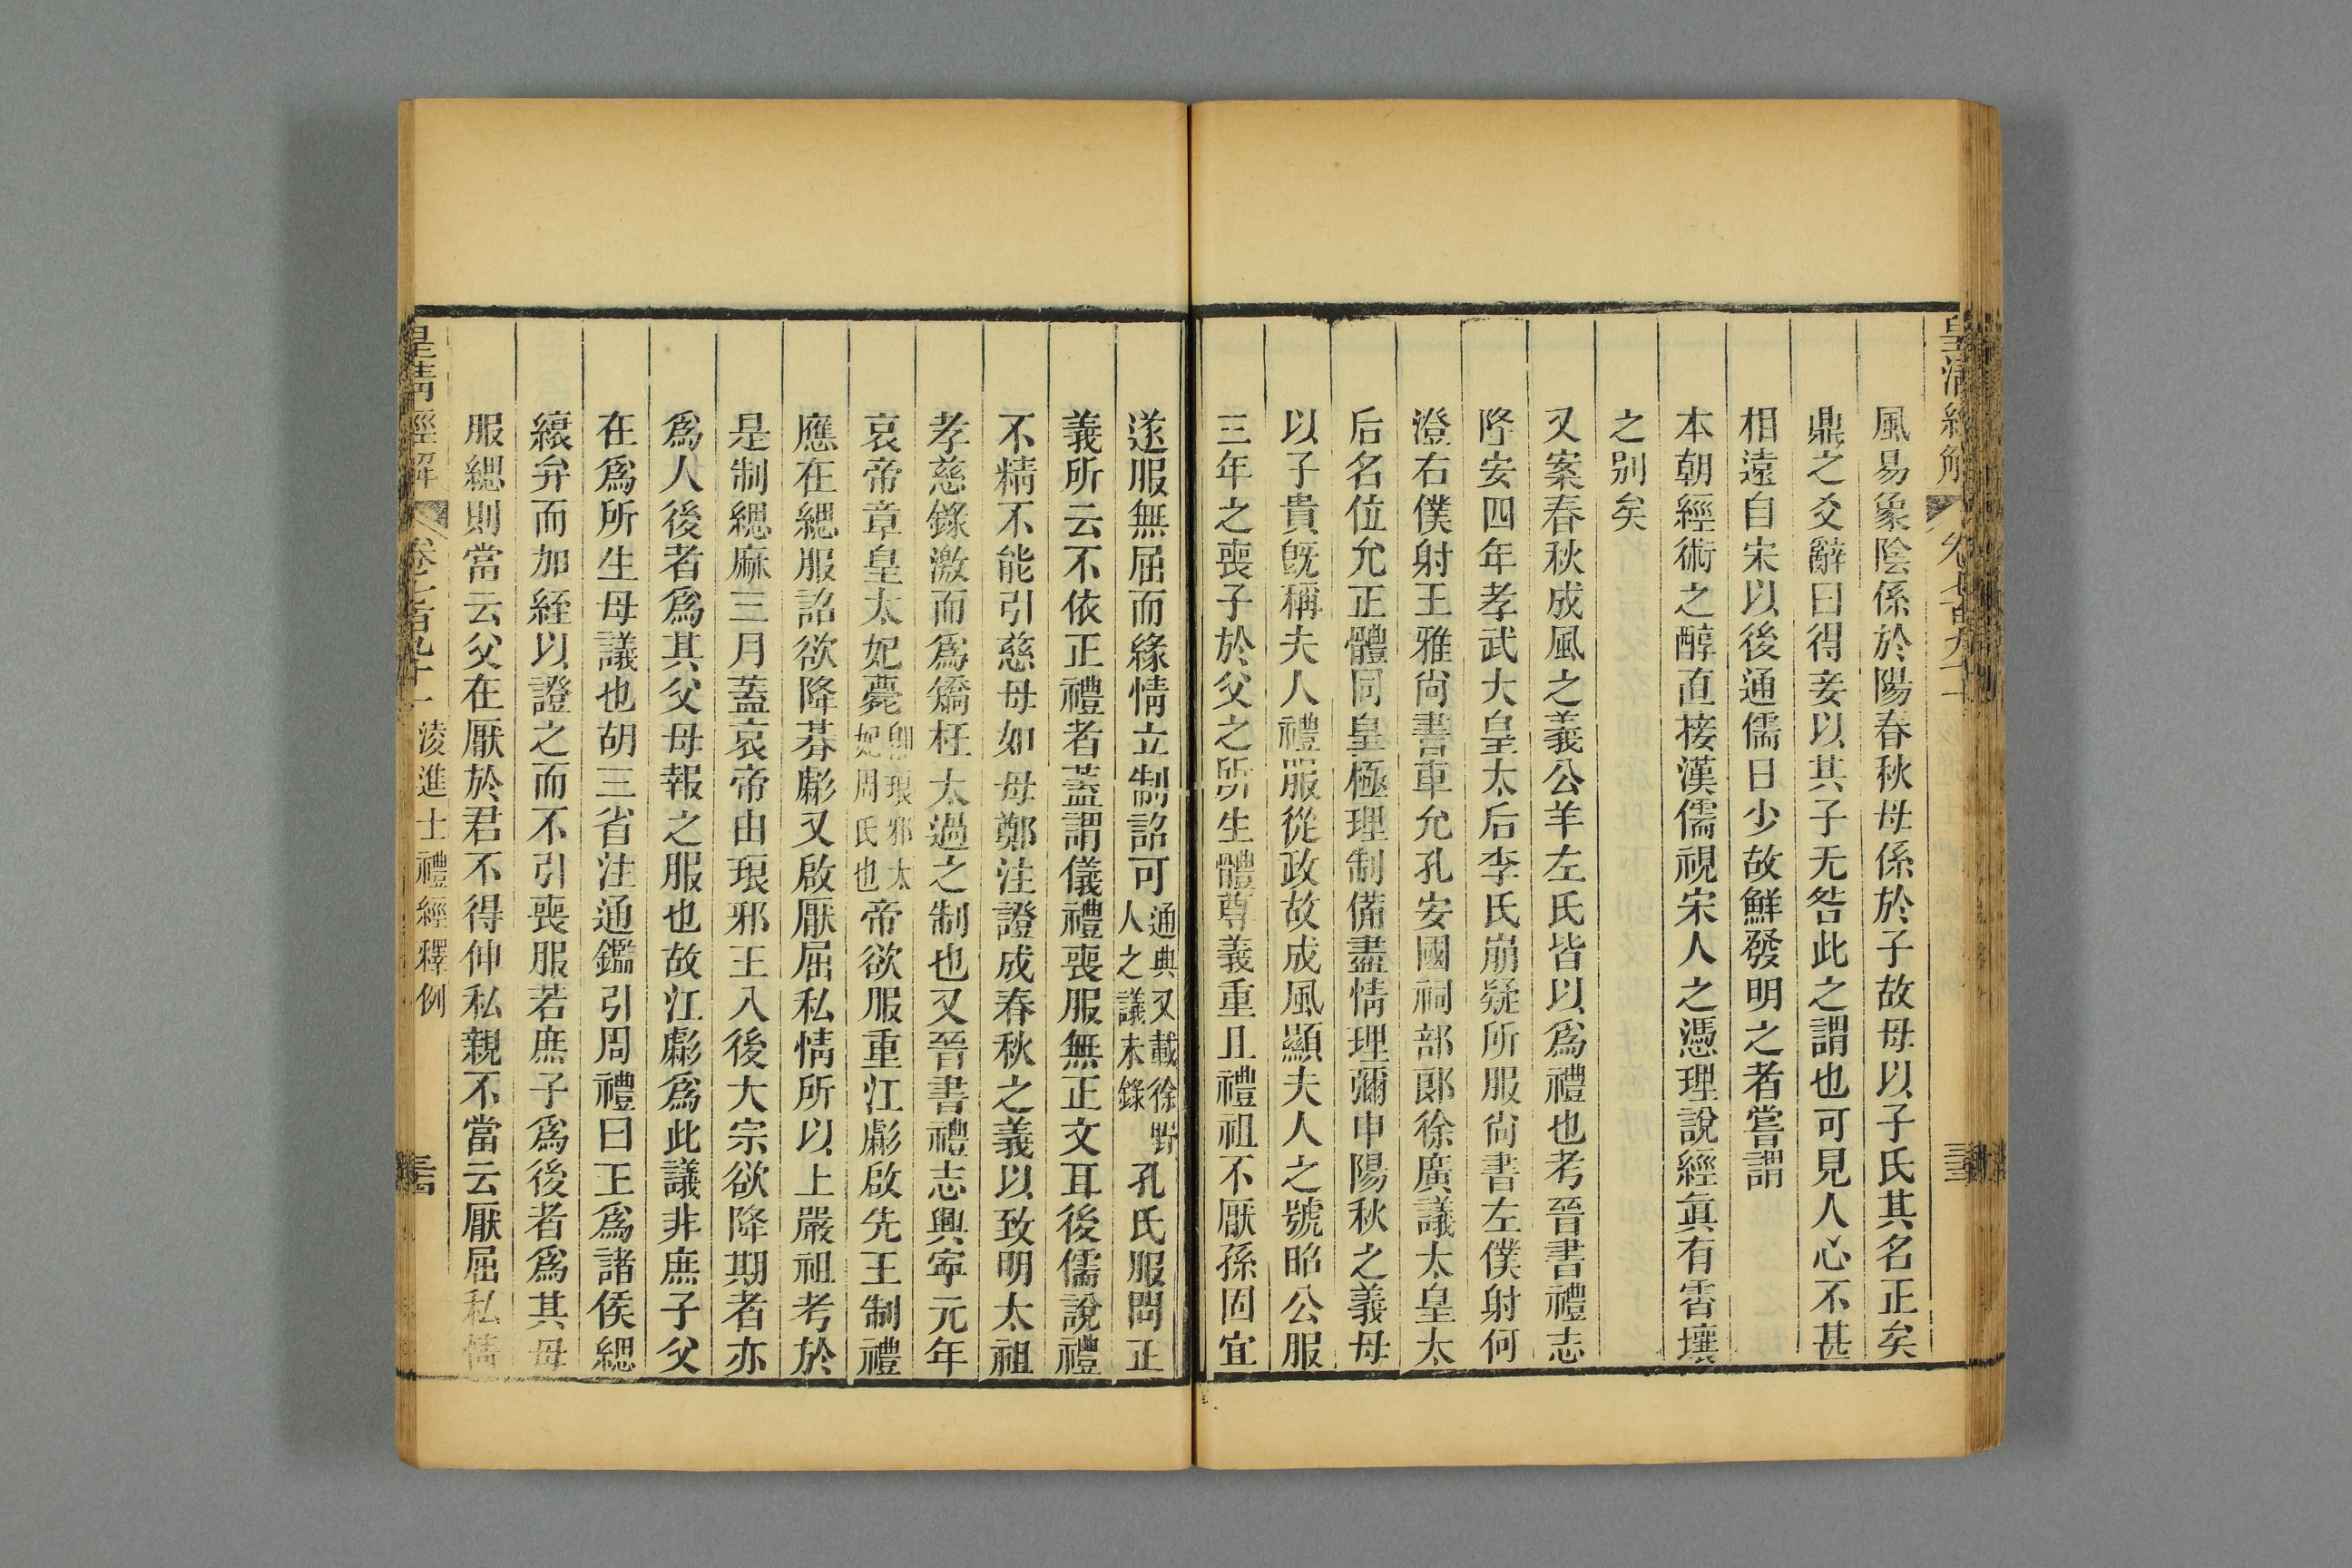 風易象陰係於陽春秋母係於子故母以子氏其名正矣
鼎之爻辭曰得妾以其子无咎此之謂也可見人心不甚
相遠自宋以後通儒日少故鮮發明之者嘗謂
本朝經術之醇直接漢儒視宋人之憑理說經眞有霄壤
之别矣
又案春秋成風之義公羊左氏皆以爲禮也考晉書禮志
隆安四年孝武大皇太后李氏崩疑所服尙書左僕射何
澄右僕射王雅尙書車允孔安國祠部郎徐廣議太皇太
后名位允正體同皇極理制備盡情理彌申陽秋之義母
以子貴旣稱夫人禮服從政故成風顯夫人之號昭公服
三年之喪子於父之所生體尊義重且禮祖不厭孫固宜
遂服無屈而緣情立制詔可通典又載徐野人之議未錄孔氏服問正
義所云不依正禮者蓋謂儀禮喪服無正文耳後儒說禮
不精不能引慈母如母鄭注證成春秋之義以致明太祖
孝慈錄激而爲矯枉太過之制也又晉書禮志興寧元年
哀帝章皇太妃薨卽琅邪太妃周氏也帝欲服重江虨啟先王制禮
應在緦服詔欲降朞虨又啟厭屈私情所以上嚴祖考於
是制緦麻三月蓋哀帝由琅邪王入後大宗欲降期者亦
爲人後者爲其父母報之服也故江虨爲此議非庶子父
在爲所生母議也胡三省注通鑑引周禮曰王爲諸侯緦
縗弁而加絰以證之而不引喪服若庶子爲後者爲其母
服緦則當云父在厭於君不得伸私親不當云厭屈私情
皇清經解 卷七百九十一 淩進士禮經釋例 三四